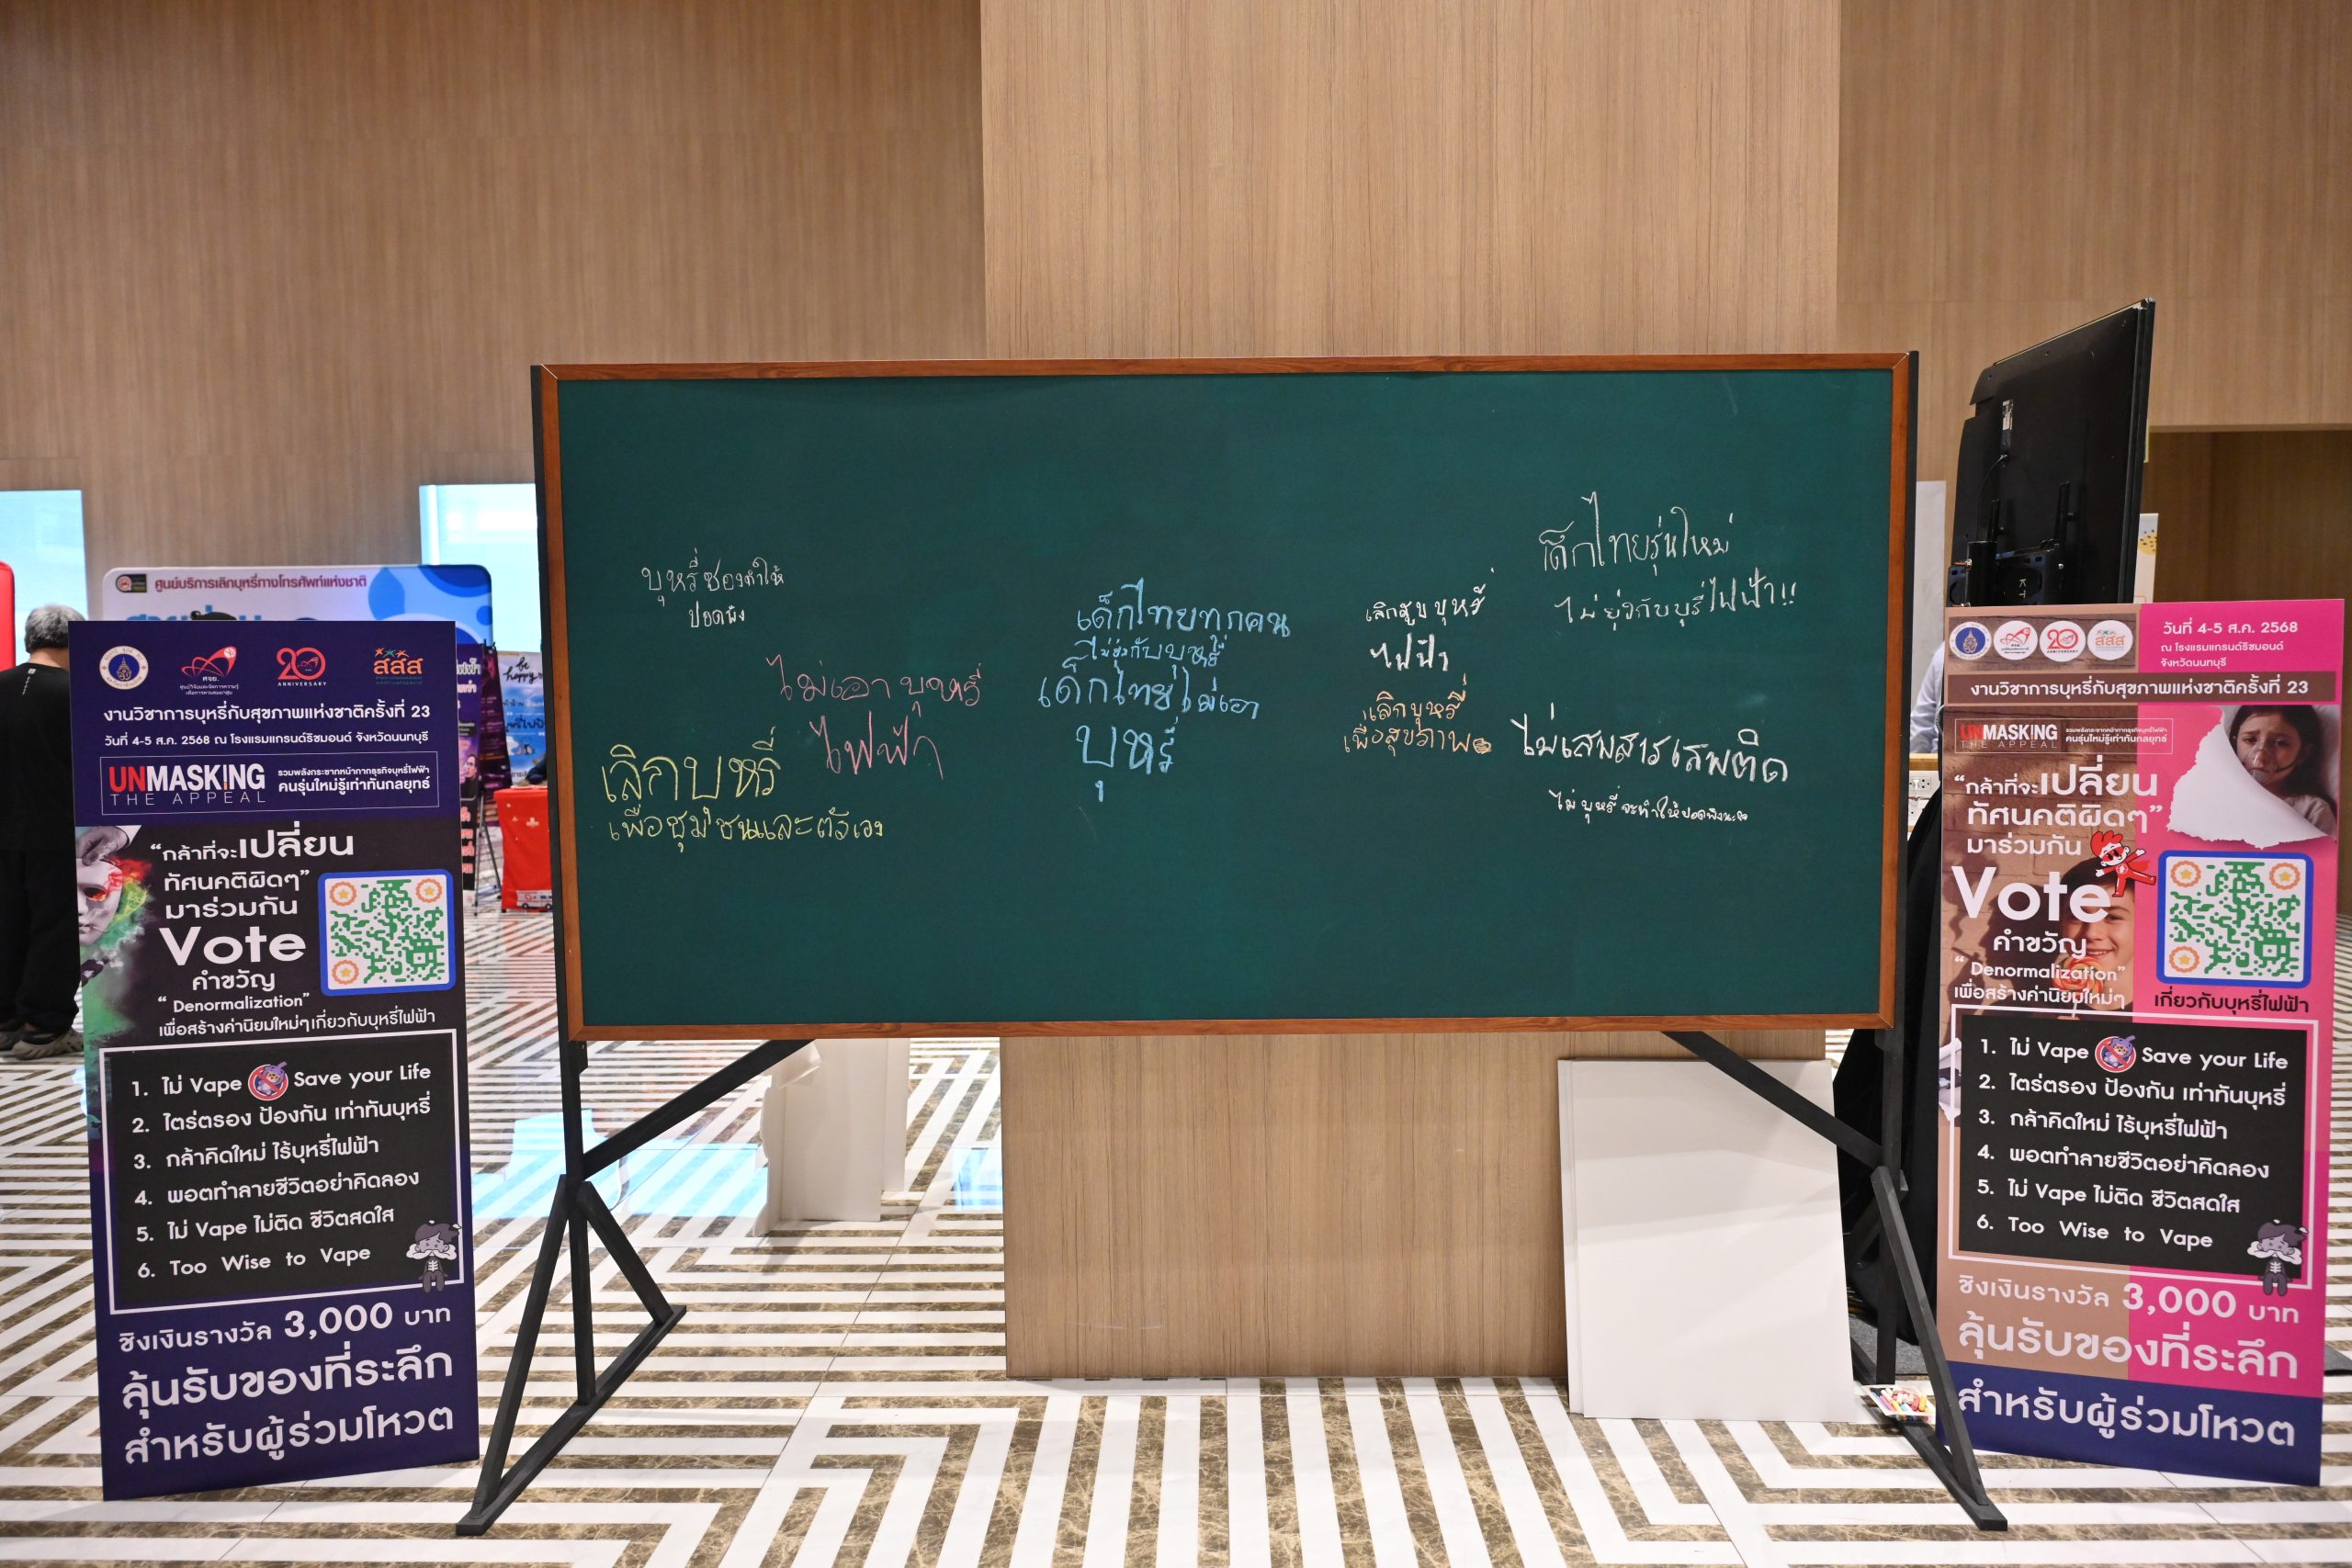 ศูนย์บริการเลิกบุหรี่ทางโทรศัพท์แห่งชาติ
be
happy
ศจย.
20
ANNIVERSARY
สสส
งานวิชาการบุหรี่กับสุขภาพแห่งชาติครั้งที่ 23
วันที่ 4-5 ส.ค. 2568 ณ โรงแรมแกรนด์ริชมอนด์ จังหวัดนนทบุรี
UNMASKING
THE APPEAL
รวมพลังกระชากหน้ากากธุรกิจบุหรี่ไฟฟ้า
คนรุ่นใหม่รู้เท่าทันกลยุทธ์
“กล้าที่จะเปลี่ยน
ทัศนคติผิดๆ”
มาร่วมกัน
Vote
คำขวัญ
“ Denormalization”
เพื่อสร้างค่านิยมใหม่ๆ เกี่ยวกับบุหรี่ไฟฟ้า
1. ไม่ Vape Save your Life
2. ไตร่ตรอง ป้องกัน เท่าทันบุหรี่
3. กล้าคิดใหม่ ไร้บุหรี่ไฟฟ้า
4. พอตทำลายชีวิตอย่าคิดลอง
5. ไม่ Vape ไม่ติด ชีวิตสดใส
6. Too Wise to Vape
ชิงเงินรางวัล 3,000 บาท
ลุ้นรับของที่ระลึก
สำหรับผู้ร่วมโหวต
บุหรี่ซองทำให้
ปอดพัง
ไม่เอา บุหรี่
ไฟฟ้า
เลิกบุหรี่
เพื่อชุมชนและตัวเอง
เด็กไทยทุกคน
ไม่ยุ่งกับบุหรี่
เด็กไทยไม่เอา
บุหรี่
เลิกสูบบุหรี่
ไฟฟ้า
เลิกบุหรี่
เพื่อสุขภาพ
เด็กไทยรุ่นใหม่
ไม่ยุ่งกับบุรี่ไฟฟ้า!!
ไม่เสพสารเสพติด
ไม่ บุหรี่ จะทำให้ปอดพังนะคะ
20
ANNIVERSARY
สสส
วันที่ 4-5 ส.ค. 2568
ณ โรงแรมแกรนด์ริชมอนด์
จังหวัดนนทบุรี
งานวิชาการบุหรี่กับสุขภาพแห่งชาติครั้งที่ 23
UNMASKING
THE APPEAL
รวมพลังกระชากหน้ากากธุรกิจบุหรี่ไฟฟ้า
คนรุ่นใหม่รู้เท่าทันกลยุทธ์
“กล้าที่จะเปลี่ยน
ทัศนคติผิดๆ”
มาร่วมกัน
Vote
คำขวัญ
“ Denormalization”
เพื่อสร้างค่านิยมใหม่ๆ
เกี่ยวกับบุหรี่ไฟฟ้า
1. ไม่ Vape Save your Life
2. ไตร่ตรอง ป้องกัน เท่าทันบุหรี่
3. กล้าคิดใหม่ ไร้บุหรี่ไฟฟ้า
4. พอตทำลายชีวิตอย่าคิดลอง
5. ไม่ Vape ไม่ติด ชีวิตสดใส
6. Too Wise to Vape
ชิงเงินรางวัล 3,000 บาท
ลุ้นรับของที่ระลึก
สำหรับผู้ร่วมโหวต